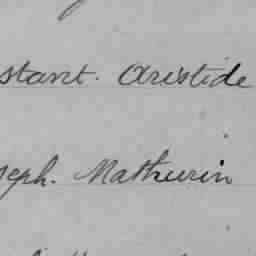 stant. Aristide
seph. Mathurin